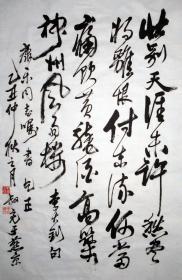 壮别天涯未许愁尽
将离恨付东流何当
痛饮黄龙府高筑
神州风雨楼 李大钊
乐同志嘱书
仲秋之月